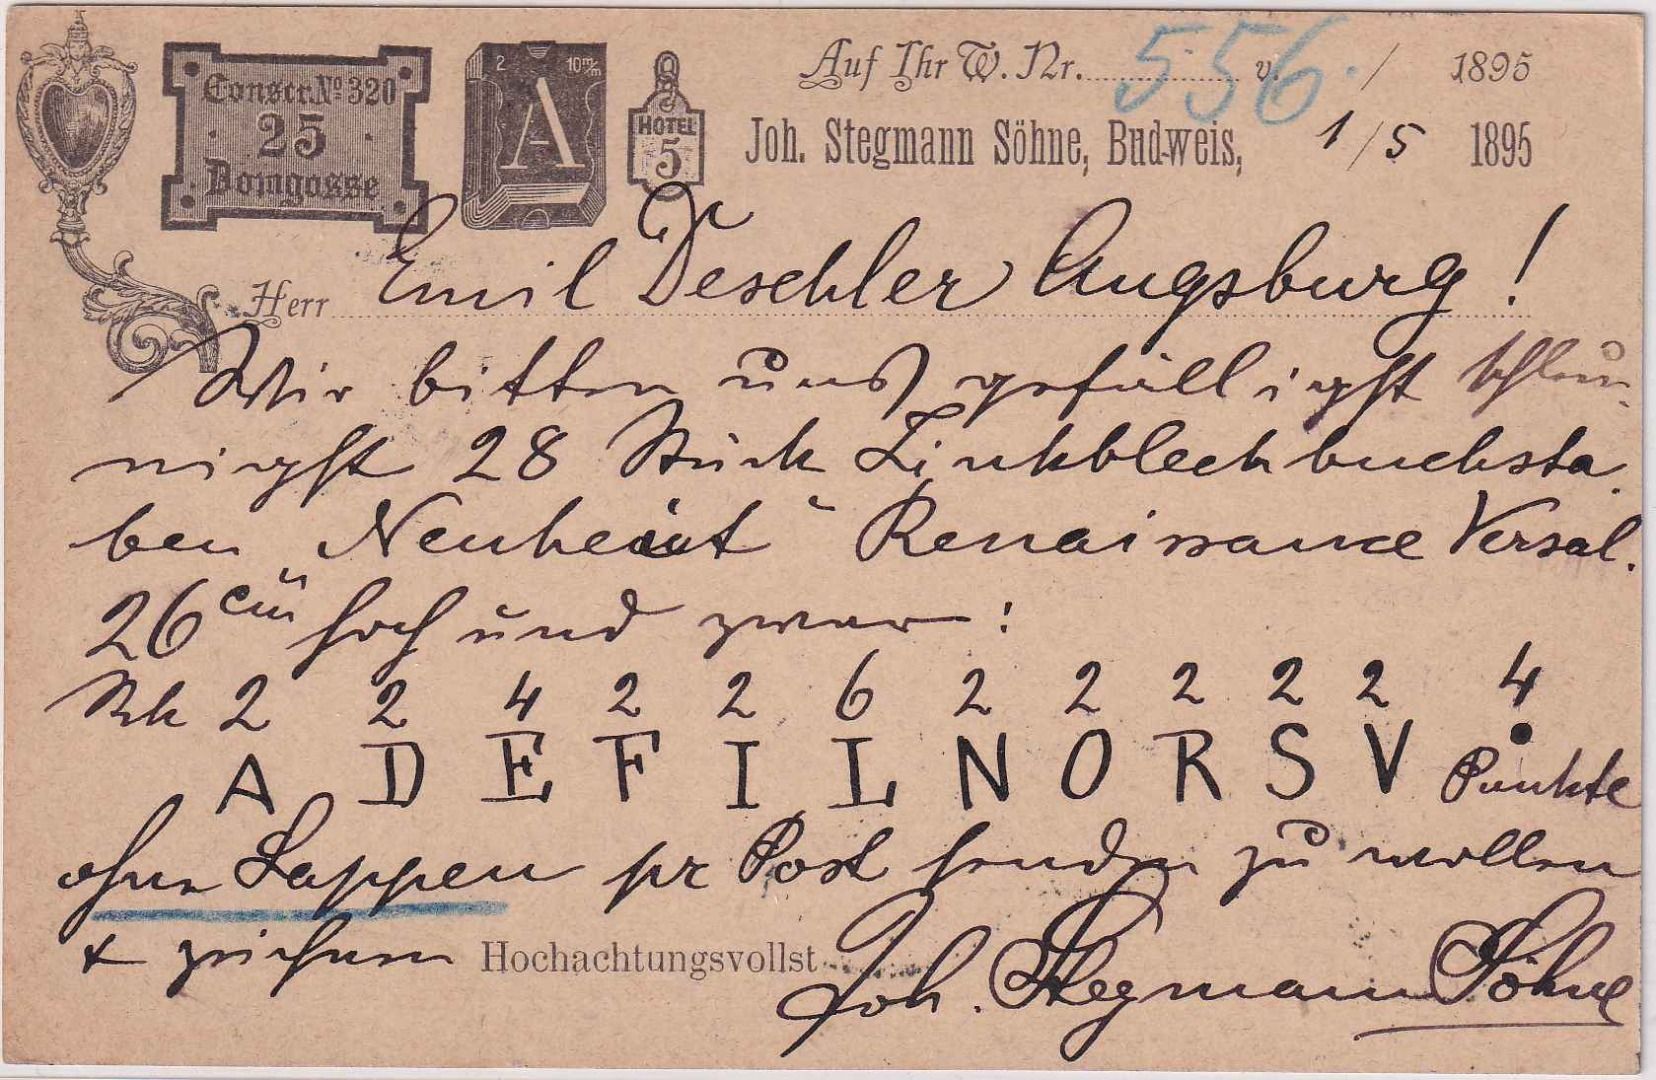 Constr. Nº 320
25
Domgasse
2
10 m/m
A
HOTEL
5
Auf Ihr W. Nr. 556. v. / 1895
Joh. Stegmann Söhne, Budweis, 1/5 1895
Herr Emil Deschler Augsburg!
Wir bitten uns gefälligst schleu-
nigst 28 Stück Zinkblechbuchsta-
ben Neuheit Renaissance Versal.
26 cm hoch und zwar:
Stk 2 2 4 2 2 6 2 2 2 2 2 4
A D E F I L N O R S V • Punkte
ohne Lappen pr Post senden zu wollen
& zeichnen Hochachtungsvollst
Joh. Stegmann Söhne